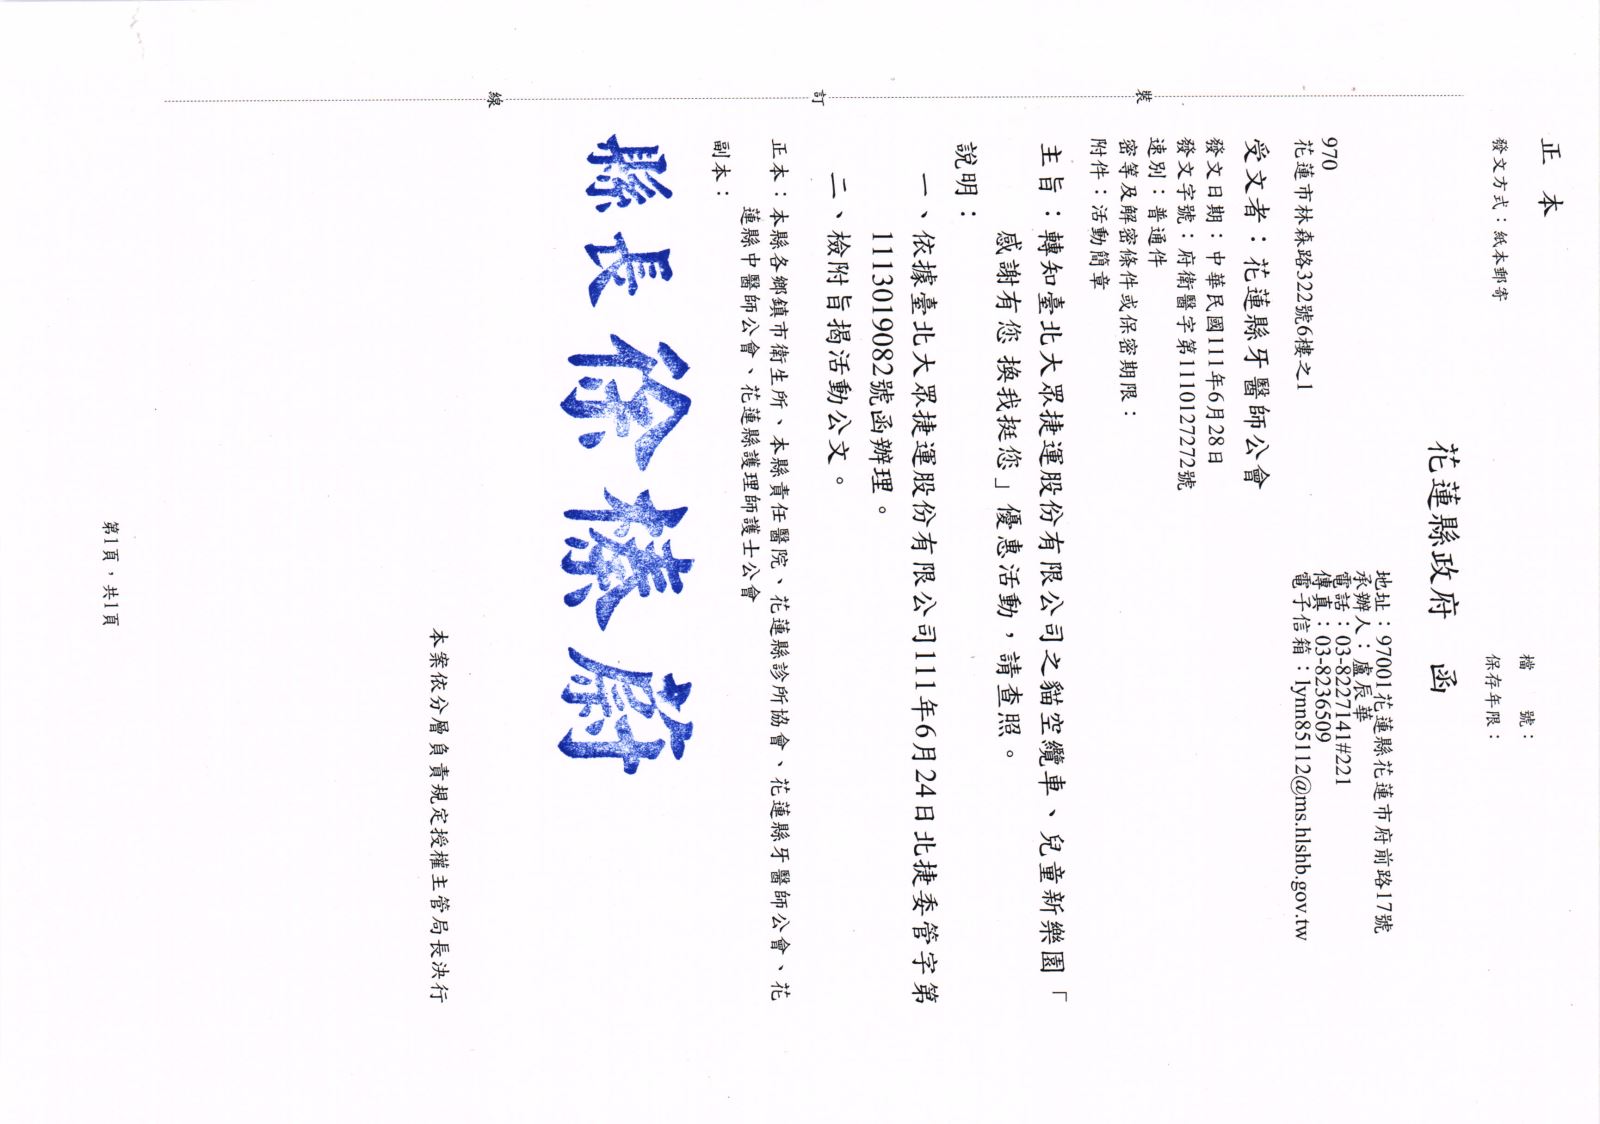 正 本
檔　　號：
保存年限：
發文方式：紙本郵寄
花蓮縣政府　函
地址：97001花蓮縣花蓮市府前路17號
承辦人：盧辰華
電話：03-8227141#221
傳真：03-8236509
電子信箱：lynn85112@ms.hlshb.gov.tw
970
花蓮市林森路322號6樓之1
受文者：花蓮縣牙醫師公會
發文日期：中華民國111年6月28日
發文字號：府衛醫字第1110127272號
速別：普通件
密等及解密條件或保密期限：
附件：活動簡章
主旨：轉知臺北大眾捷運股份有限公司之貓空纜車、兒童新樂園「
感謝有您 換我挺您」優惠活動，請查照。
說明：
一、依據臺北大眾捷運股份有限公司111年6月24日北捷委管字第
1113019082號函辦理。
二、檢附旨揭活動公文。
正本：本縣各鄉鎮市衛生所、本縣責任醫院、花蓮縣診所協會、花蓮縣牙醫師公會、花
蓮縣中醫師公會、花蓮縣護理師護士公會
副本：
縣長 徐榛蔚
本案依分層負責規定授權主管局長決行
第1頁，共1頁
裝
訂
線